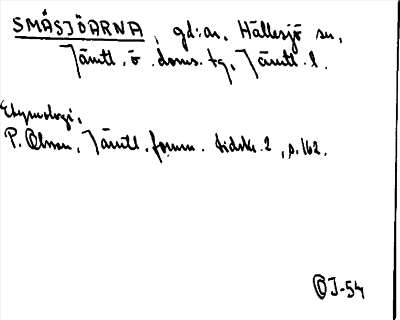 SMÅSJÖARNA, gd:ar, Hällesjö sn,
Jämtl. ö. doms. tg, Jämtl. l.
Etymologi,
P. Olsson, Jämtl. fornm. tidskr. 2, s. 162.
OJ-54